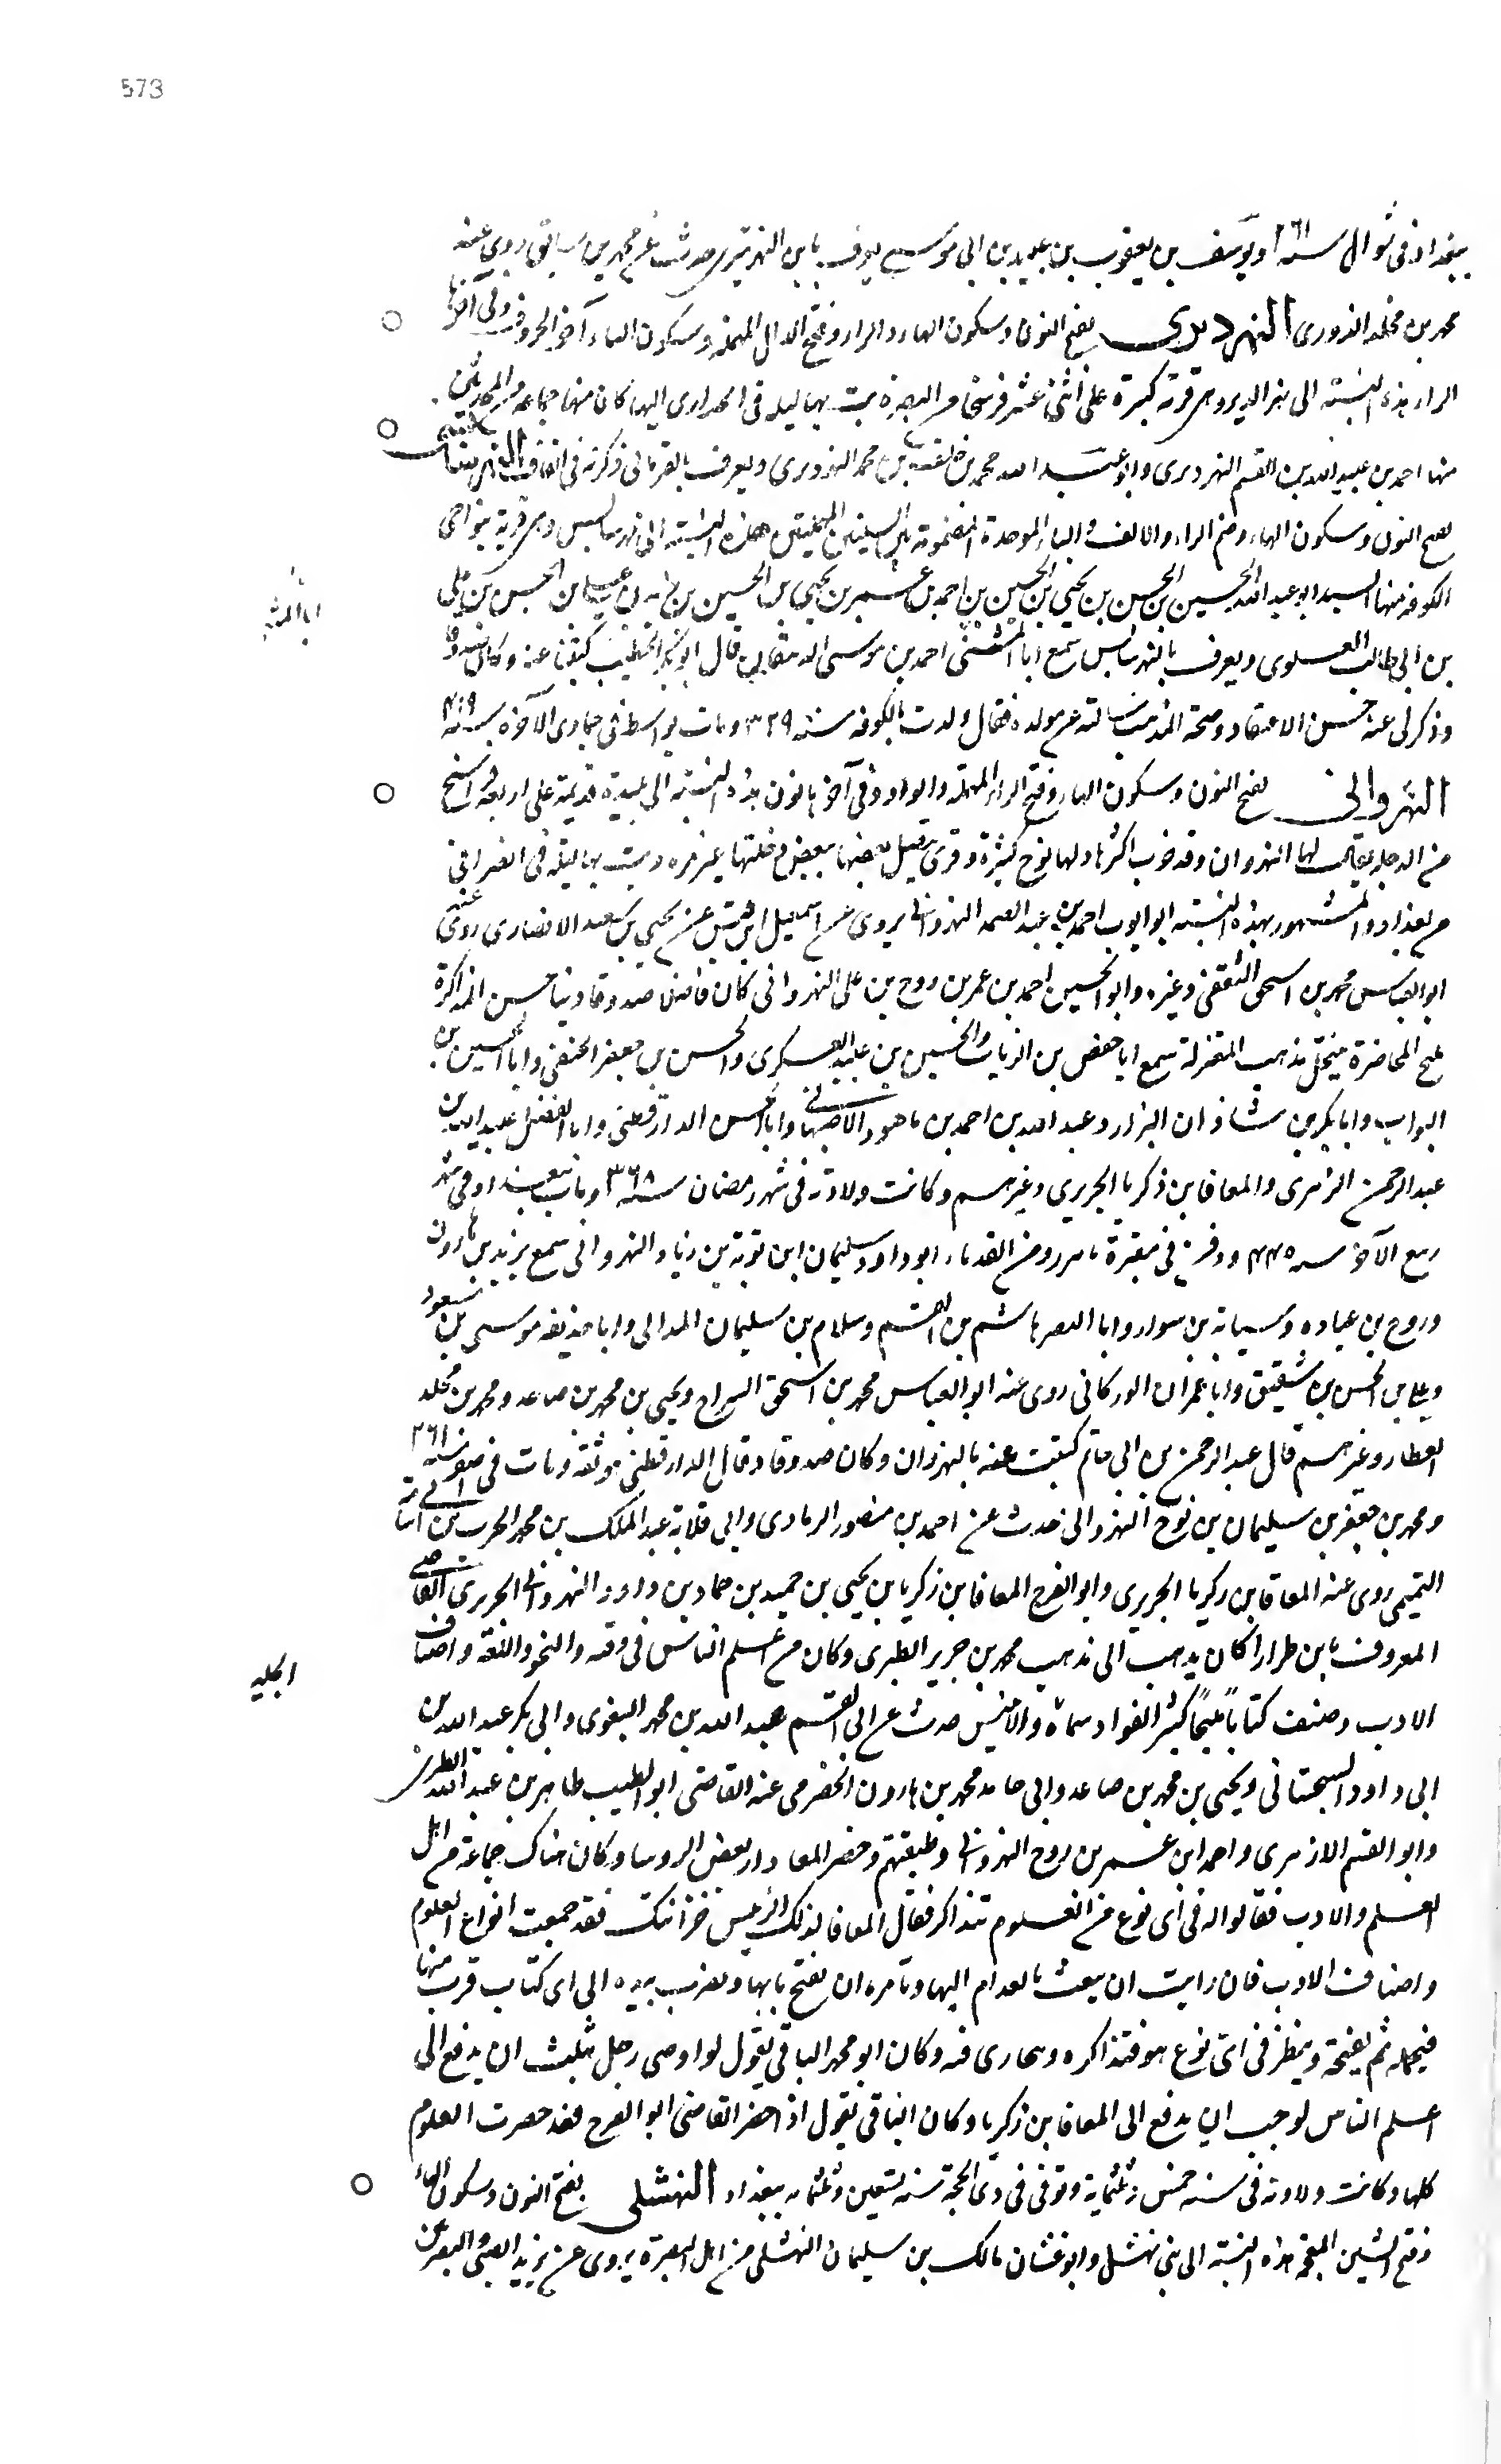 573
ببغداد في شوال سنة ٢٦١ ويوسف بن يعقوب بن عبيد بن ابي موسى يعرف بابن النهرتيرى حدث عن محمد بن سابق روى عنه
محمد بن مخلد الدورى النهرديرى بفتح النون وسكون الهاء والراء وفتح الدال المهملة وسكون الياء آخر الحروف وفي آخرها
الراء هذه النسبة الى نهر الدير وهى قرية كبيرة على اثنى عشر فرسخا من البصرة بت بها ليلة في انحدارى اليها كان منها جماعة من المحدثين
منها احمد بن عبيد الله بن القسم النهرديرى وابو عبد الله محمد بن خلف بن محمد النهرديرى ويعرف بالقرمانى ذكرته في القاف النهرسابسى
بفتح النون وسكون الهاء وضم الراء والالف والباء الموحدة المضمومة بين السينين المهملتين هذه النسبة الى نهر سابس وهى قرية بنواحى
الكوفة منها السيد ابو عبد الله الحسين بن الحسن بن يحيى بن الحسين بن احمد بن عمر بن يحيى بن الحسين بن زيد بن على بن الحسين بن على
بن ابى طالب العلوى ويعرف بالنهرسابسى سمع ابا المثنى احمد بن موسى الدهقان قال ابو بكر الخطيب كتبنا عنه وكان صدوقا
ابا المثنى
وذكر لى عنه حسن الاعتقاد وصحة المذهب سالته عن مولده فقال ولدت بالكوفة سنة ٣٢٩ ومات بواسط في جمادى الآخرة سنة ٤١٩
النهروانى بفتح النون وسكون الهاء وفتح الراء المهملة والواو وفي آخرها نون هذه النسبة الى بليدة قديمة على اربعة فراسخ
من الدجلة يقال لها النهروان وقد خرب اكثرها ولها نوح كثيرة وقرى يتصل بعضها ببعض دخلتها غير مرة وبت بها ليلة في انصرافى
من بغداد والمشهور بهذه النسبة ابو ايوب احمد بن عبد الصمد النهروانى يروى عن اسمعيل ابن قيس عن يحيى بن سعيد الانصارى روى عنه
ابو العباس محمد بن اسحق الثقفى وغيره وابو الحسين احمد بن عمر بن روح بن على النهروانى كان فاضلا صدوقا دينا حسن المذاكرة
مليح المحاضرة ينتحل مذهب المعتزلة سمع ابا حفص بن الزيات والحسين بن عبيد العسكرى والحسن بن جعفر الحنفى وابا الحسين بن
البواب وابا بكر بن شاذان البزار وعبد الله بن احمد بن ماهبود الاصبهانى وابا الحسن الدارقطنى وابا الفضل عبيد الله بن
عبد الرحمن الزهرى والمعافا بن زكريا الجريرى وغيرهم وكانت ولادته في شهر رمضان سنة ٣٦٨ ومات ببغداد في شهر
ربيع الآخر سنة ٤٤٥ ودفن في مقبرة باب حرب ومن القدماء ابو داود سليمان ابن توبة بن زياد النهروانى سمع يزيد بن هارون
وروح بن عبادة وشبابة بن سوار وابا النضر هاشم بن القسم وسلام بن سليمان المدائنى وابا حذيفة موسى بن مسعود
وعلى بن الحسن بن شقيق وابا عمران الوركانى روى عنه ابو العباس محمد بن اسحق السراج ويحيى بن محمد بن صاعد ومحمد بن مخلد
العطار وغيرهم قال عبد الرحمن بن ابى حاتم كتبت عنه بالنهروان وكان صدوقا وقال الدارقطنى هو ثقة ومات في صفر سنة ٢٦١
ومحمد بن جعفر بن سليمان بن نوح النهروانى حدث عن احمد بن منصور الرمادى وابى قلابة عبد الملك بن محمد والحرث بن ابى اسامة
التميمى روى عنه المعافا بن زكريا الجريرى وابو الفرج المعافا بن زكريا بن يحيى بن حميد بن حماد بن داود النهروانى الجريرى القاضى
المعروف بابن طرارا كان يذهب الى مذهب محمد بن جرير الطبرى وكان من اعلم الناس في وقته والنحو واللغة واصناف
الجليس
الادب وصنف كتابا مليحا كثير الفوائد سماه والانيس حدث عن ابى القسم عبد الله بن محمد البغوى وابى بكر عبد الله بن
ابى داود السجستانى ويحيى بن محمد بن صاعد وابى حامد محمد بن هارون الحضرمى عنه القاضى ابو الطيب طاهر بن عبد الله الطبرى
وابو القسم الازهرى واحمد ابن عمر بن روح النهروانى وطبقتهم وحضر المعافا دار بعض الروسا وكان هناك جماعة من اهل
العلم والادب فقالوا له في اى نوع من العلوم تتذاكر فقال المعافا لذلك الرئيس خزانتك فقد جمعت انواع العلوم
واصناف الادب فان رايت ان يبعث بالغلام اليها وتامره ان يفتح بابها ويضرب بيده الى اى كتاب قرب منها
فيحمله ثم يفتحه وينظر في اى نوع هو فتذاكره وتجارى فيه وكان ابو محمد البافى يقول لو اوصى رجل بثلث ان يدفع الى
اعلم الناس لوجب ان يدفع الى المعافا بن زكريا وكان البافى يقول اذا حضر القاضى ابو الفرج فقد حضرت العلوم
كلها وكانت ولادته في سنة خمس وثلثماية وتوفى في ذى الحجة سنة تسعين وثلثماية ببغداد النهشلى بفتح النون وسكون الهاء
وفتح الشين المعجمة هذه النسبة الى بنى نهشل وابو غسان مالك بن سليمان النهشلى من اهل البصرة يروى عن يزيد الضبى والبصريين